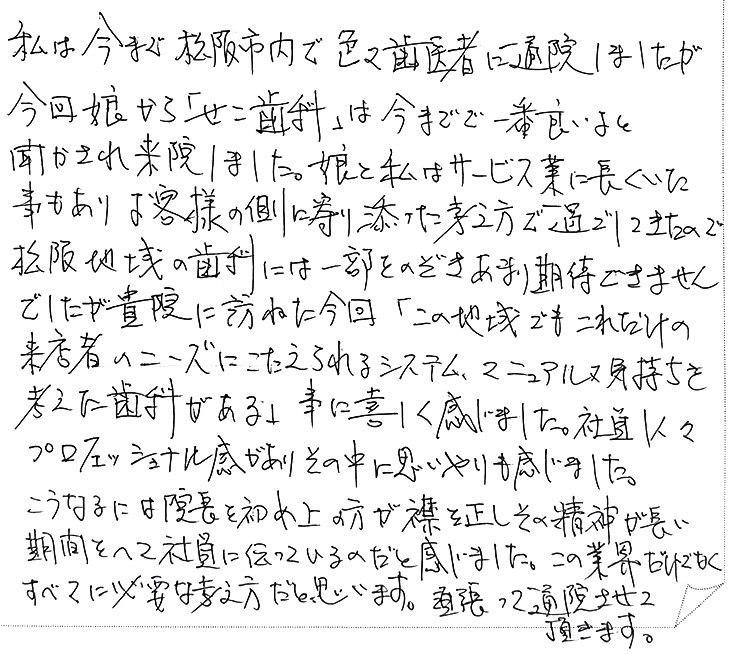 私は今まで松阪市内で色々歯医者に通院しましたが
今回娘から「せこ歯科」は今までで一番良いよと
聞かされ来院しました。娘と私はサービス業に長くいた
事もありお客様の側に寄り添った考え方で過ごしてきたので
松阪地域の歯科には一部をのぞきあまり期待できません
でしたが貴院に訪ねた今回「この地域でもこれだけの
来店者のニーズにこたえられるシステム、マニュアル又気持ちを
考えた歯科がある」事に喜しく感じました。社員1人々
プロフェッショナル感がありその中に思いやりも感じました。
こうなるには院長を初め上の方が襟を正しその精神が長い
期間をへて社員に伝っているのだと感じました。この業界だけでなく
すべてに必要な考え方だと思います。頑張って通院させて
頂きます。